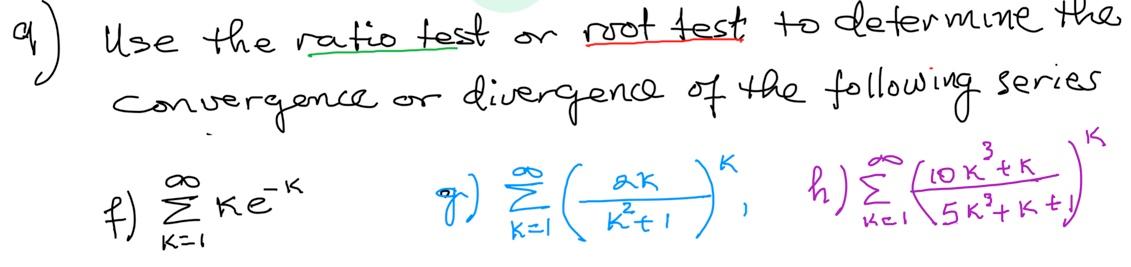 9) Use the ratio test or root test to determine the
convergence or divergence of the following series
f) ∞ Σ k=1 k e^-k g) ∞ Σ k=1 (2k / k²+1)^k , h) ∞ Σ k=1 (10k³+k / 5k³+k+1)^k